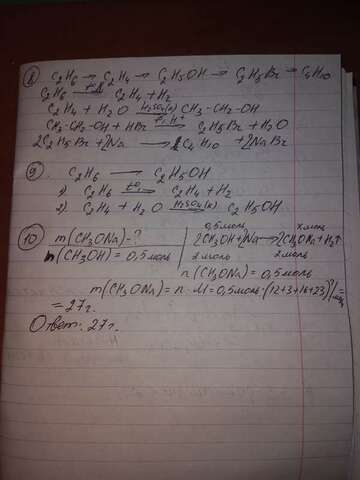 8) C2H6 → C2H4 → C2H5OH → C2H5Br → C4H10
C2H6 →(t°) C2H4 + H2
C2H4 + H2O →(H2SO4(к)) CH3-CH2-OH
CH3-CH2-OH + HBr →(H+) C2H5Br + H2O
2C2H5Br + 2Na → C4H10 + 2NaBr
9) C2H6 → C2H5OH
1) C2H6 →(t°) C2H4 + H2
2) C2H4 + H2O →(H2SO4(к)) C2H5OH
10) m(CH3ONa) - ?
n(CH3OH) = 0,5 моль
0,5 моль x моль
2CH3OH + 2Na → 2CH3ONa + H2↑
2 моль 2 моль
n(CH3ONa) = 0,5 моль
m(CH3ONa) = n · M = 0,5 моль · (12+3+16+23) г/моль =
= 27 г.
Ответ: 27 г.